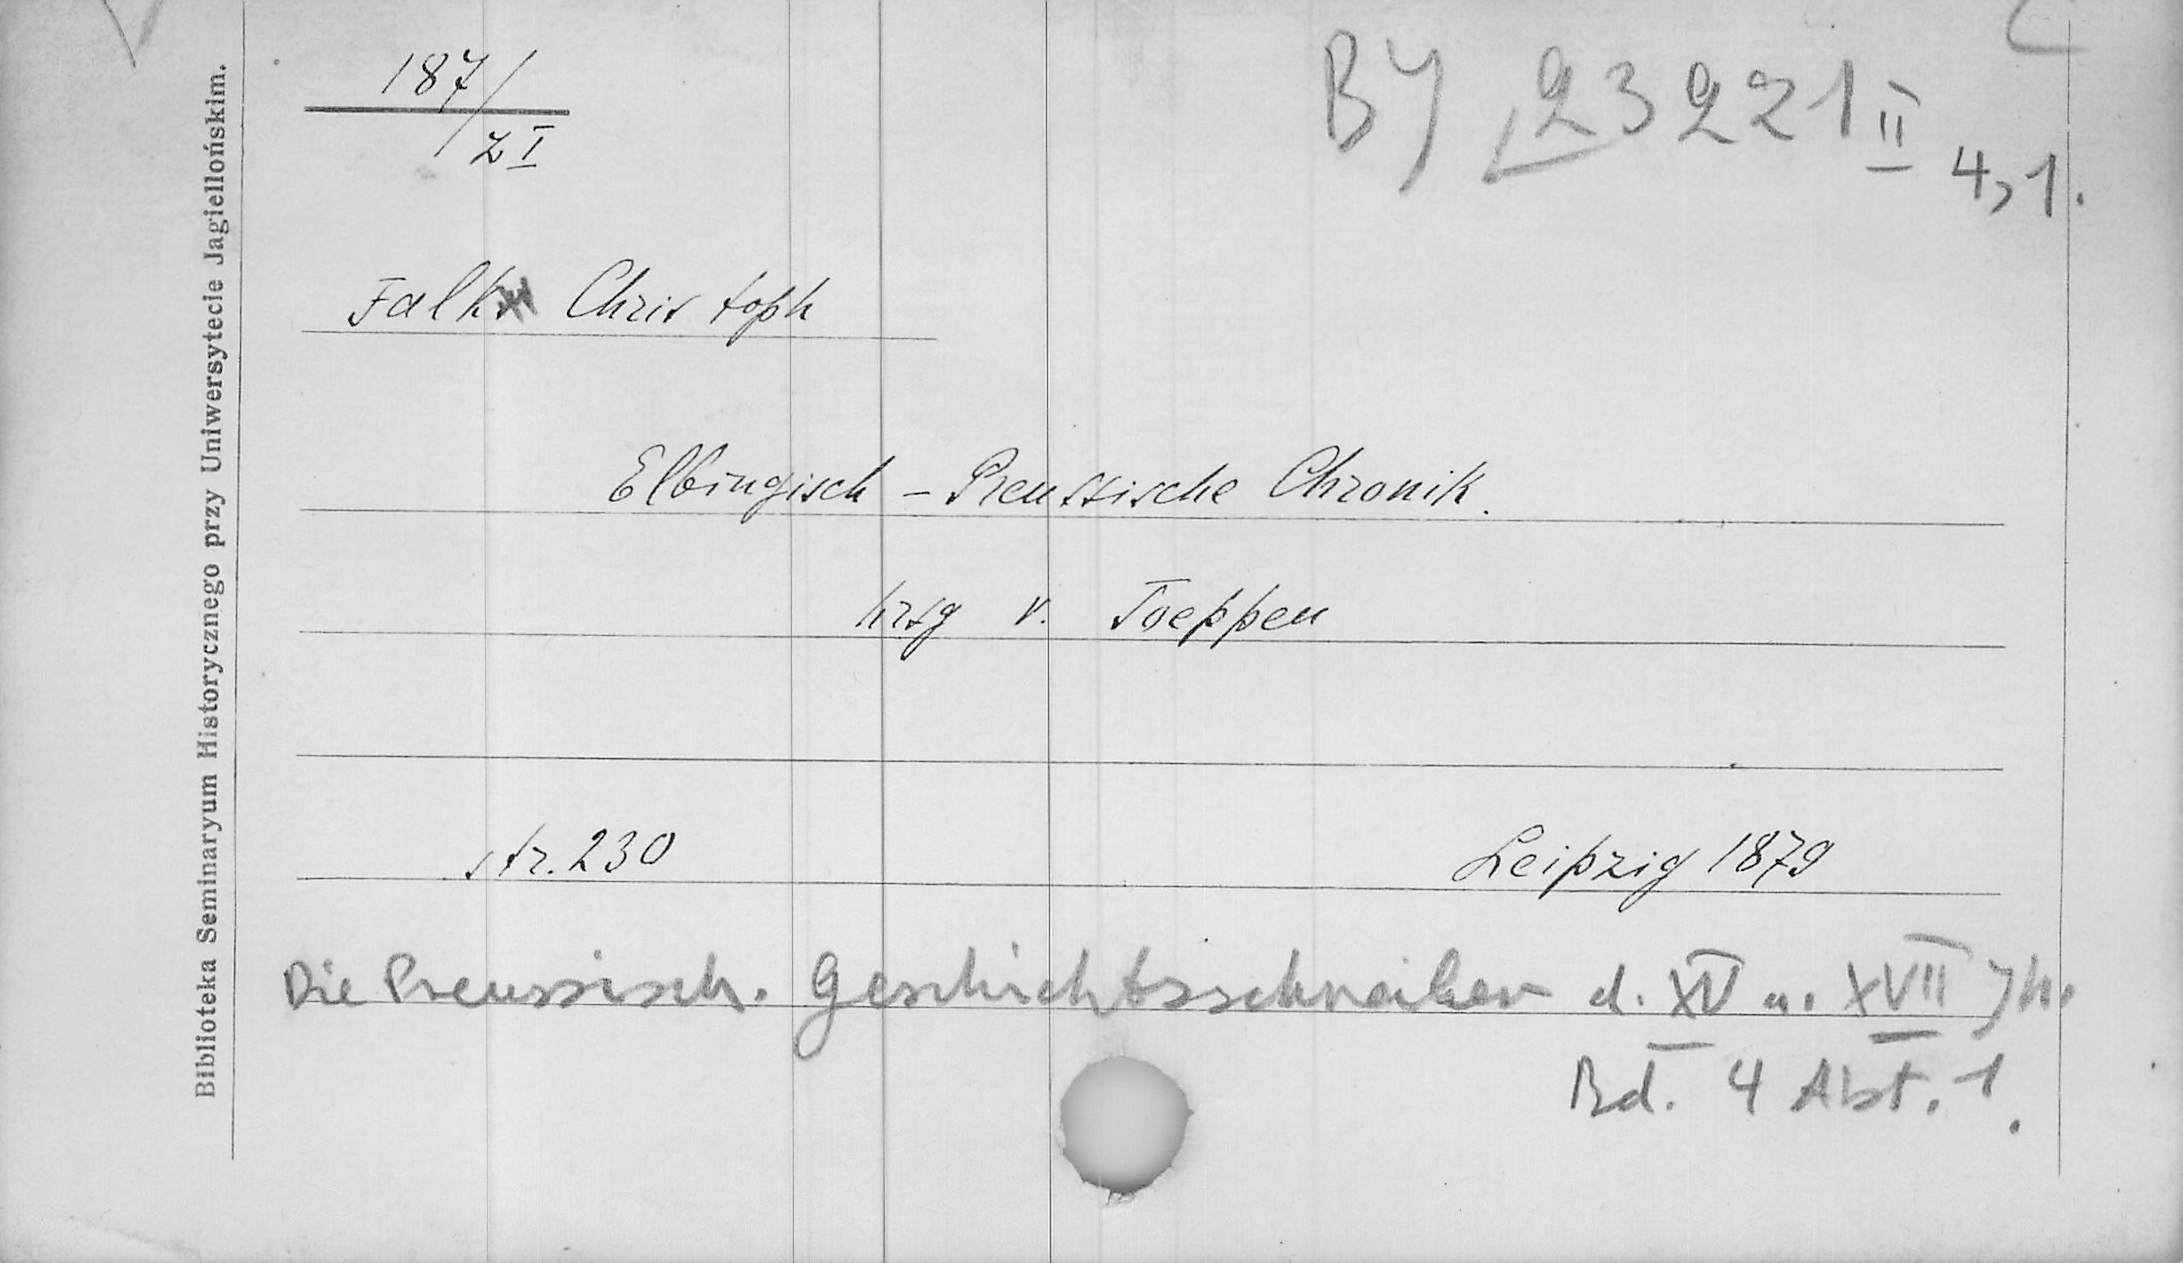 187/
Z I
BJ 23221 II 4,1.
Falk Christoph
Elbingisch - Preussische Chronik.
hrsg v. Toeppen
str. 230
Leipzig 1879
Die Preussisch. Geschichtsschreiber d. XV u. XVII Jh.
Bd. 4 Abt. 1.
Biblioteka Seminaryum Historycznego przy Uniwersytecie Jagiellońskim.